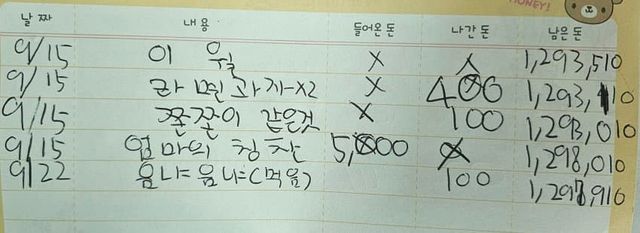 MONEY!
날짜 내용 들어온 돈 나간 돈 남은 돈
9/15 이월 X X 1,293,510
9/15 라면과자X2 X 400 1,293,110
9/15 쫀쫀이 같은것 X 100 1,293,010
9/15 엄마의 칭찬 5,000 X 1,298,010
9/22 욤냐욤냐(먹음) 100 1,297,910